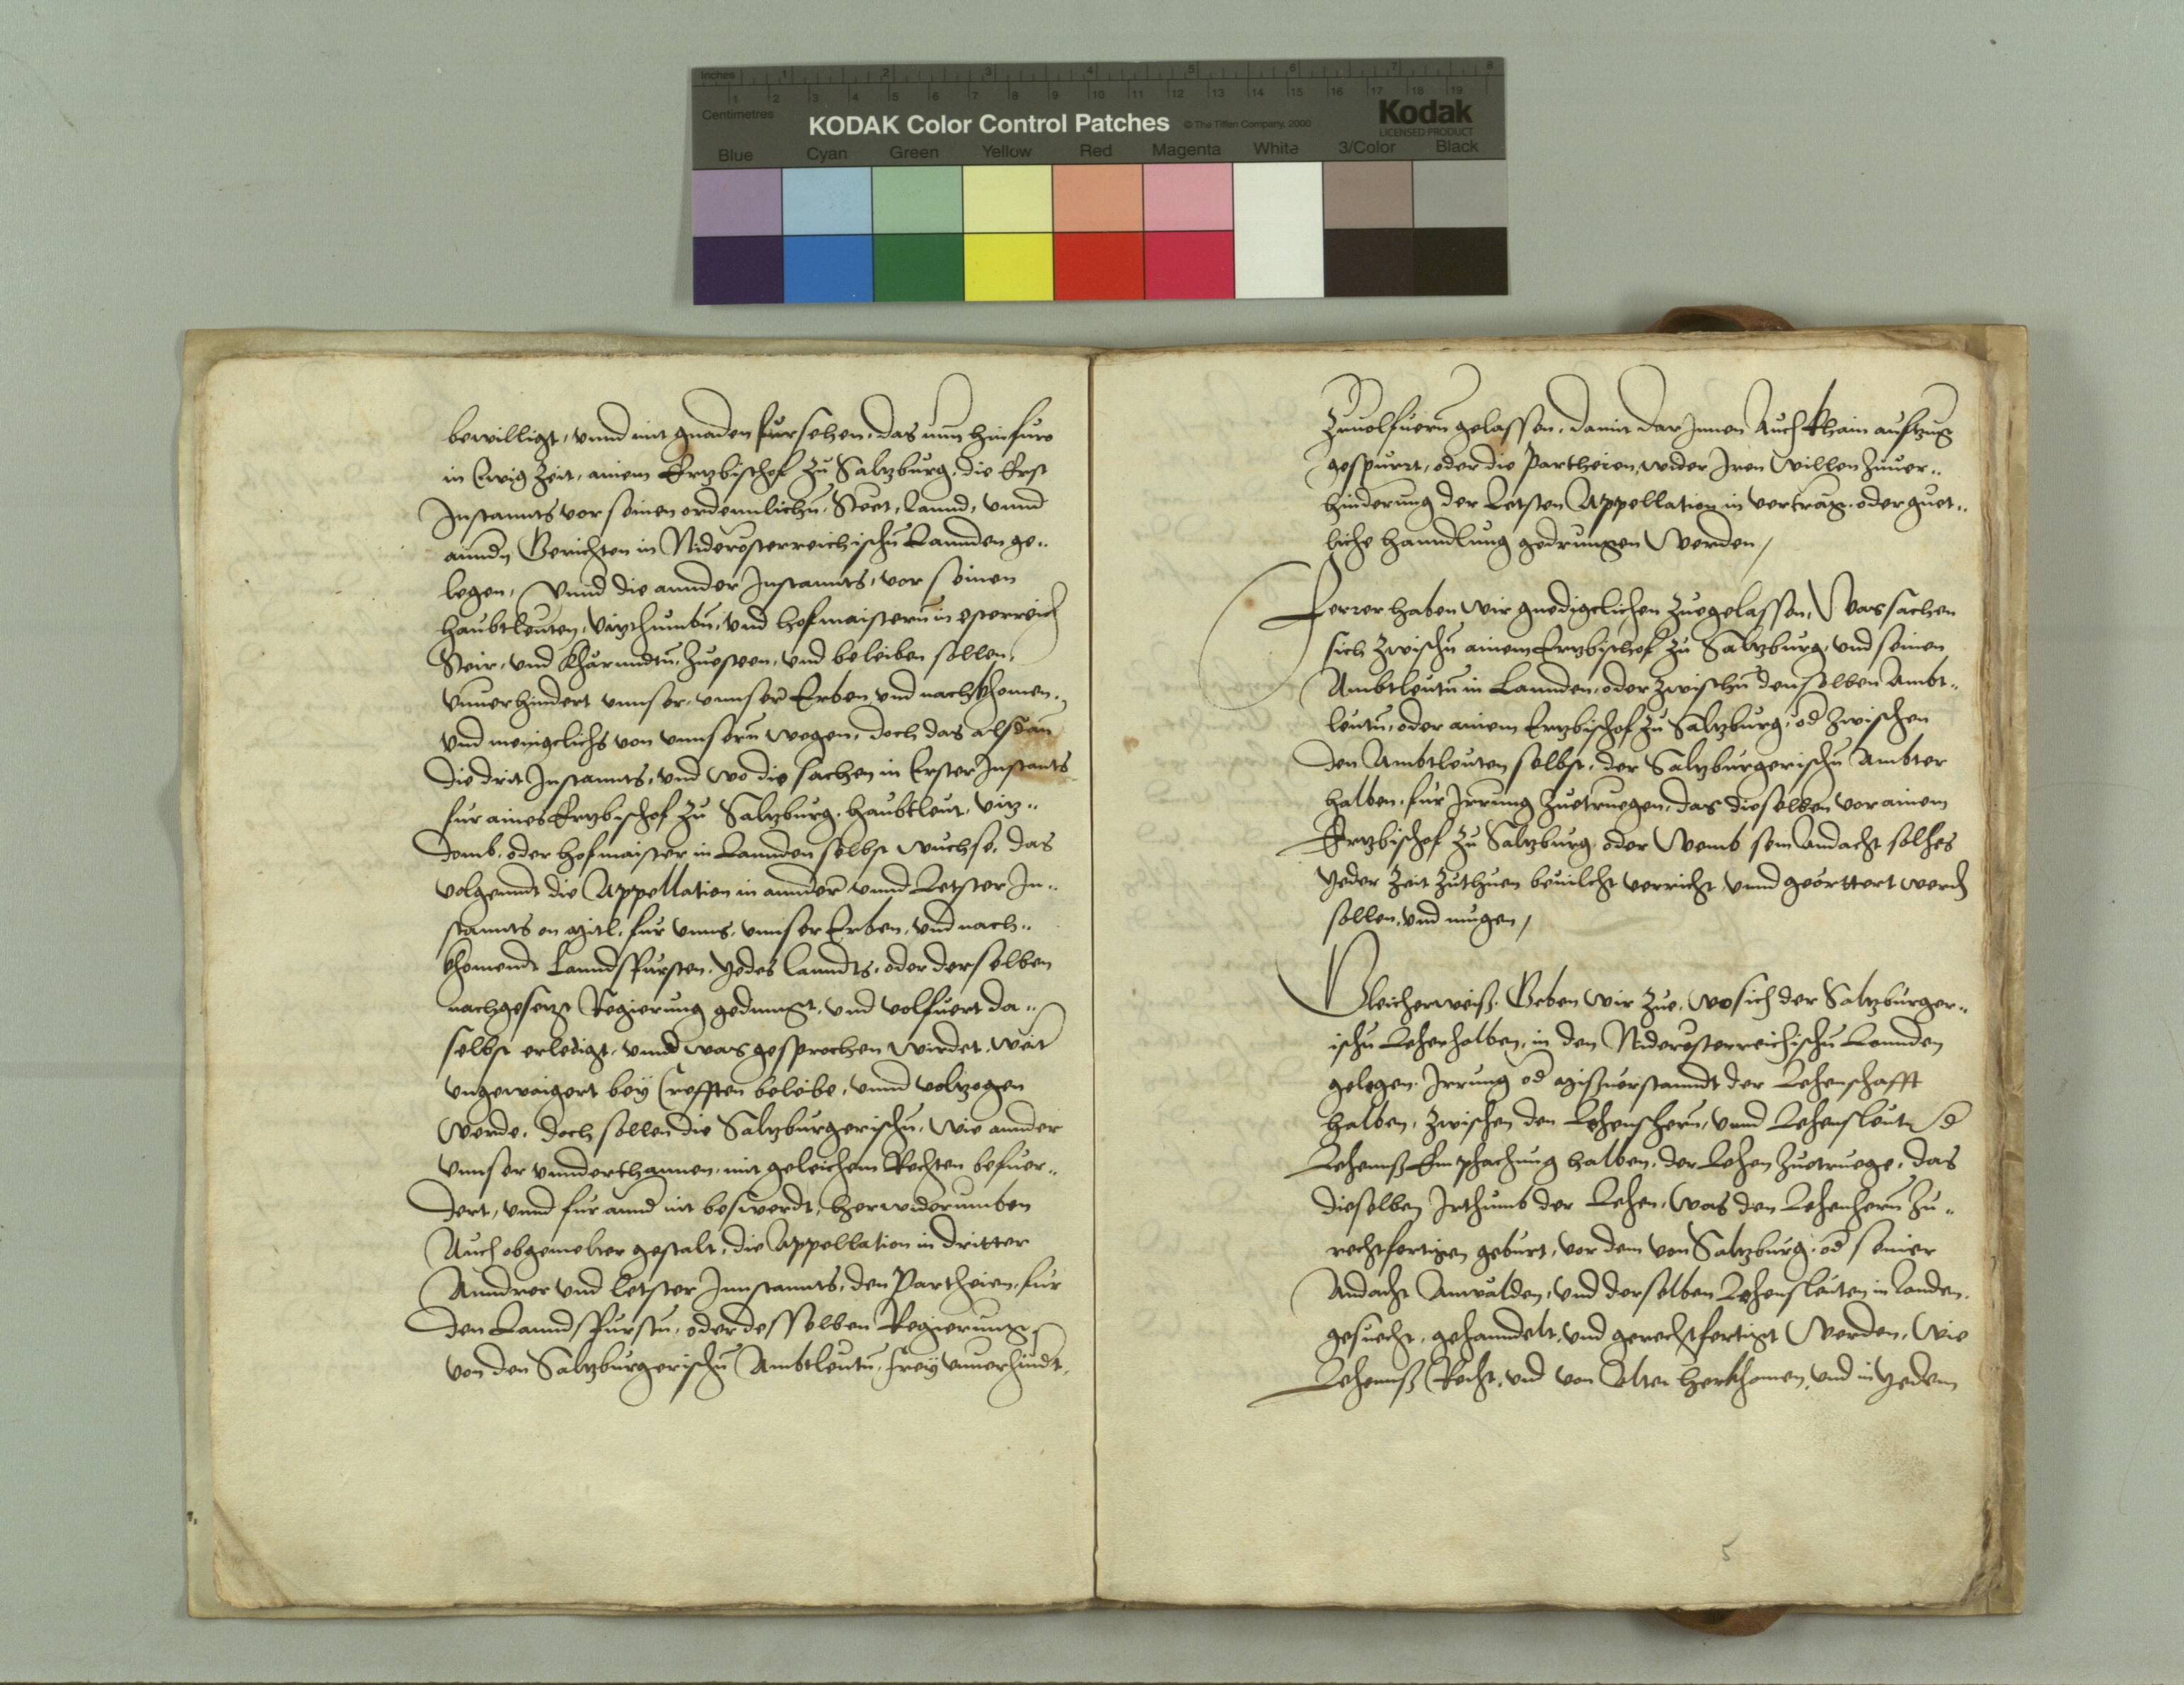 Inches 1 2 3 4 5 6 7 8
Centimetres 1 2 3 4 5 6 7 8 9 10 11 12 13 14 15 16 17 18 19
KODAK Color Control Patches © The Tiffen Company, 2000 Kodak
LICENSED PRODUCT
Blue Cyan Green Yellow Red Magenta White 3/Color Black
bewilligt, vnnd mit gnaden fürsehen, das nun hinfuro
in Ewig Zeit, ainem Ertzbischof zu Saltzburg, die Erst
Instannts vor seinen ordennlichn, Stett, Lannd, vnnd
anndn Gerichten in Niderösterreichischn Lannden ge„
legen, Vnnd die annder Instannts, vor seinen
Haubtleuten, Vitzthumbn, vnd Hofmaistern in Osterreich
Steir, vnd Khärnndtn, Zuesteen, vnd beleiben sollen,
Vnuerhindert vnnser, vnnser Erben, vnd nachkhomen„
vnd menigclichs von vnnsern wegen, doch das alsdan
die drit Instannts, vnd wo die sachen in Erster Instants
für aines Ertzbischof zu Saltzburg, haubtleut, Vitz„
domb, oder hofmaister in Lannden selbst wuchse, das
volgenndt die Appellation in annder vnnd Letster In„
stannts on mitl, für vnns, vnnser Erben, vnd nach„
khomende Lanndsfürsten, Yedes Lanndts, oder derselben
nachgesetzt Regierung gedingt, vnd volfuert da„
selbst erledigt, vnnd was gesprochen wirdet, weit
vngewaigert bey Crefften beleibe, vnnd voltzogen
Werde, doch sollen die Saltzburgerischn, wie annder
vnnser vnnderthannen, mit geleichem Rechten befuer„
dert, vnnd für annd nit beswerdt, herwiderumben
Auch obgemelter gestalt, die Appellation in dritter
Anndrer vnd Letster Innstannts, den Partheien, für
den Lanndsfürstn, oder desselben Regierung,
von den Saltzburgerischn Ambtleutn, frey vnuerhindt,
Zuuolfuern gelassen, damit darjnnen Auch khain aufzug
gespürrt, oder die Partheien, wider Iren willen zuuer„
hinderung der Letsten Appellation in vertrag, oder guet„
liche hanndlung gedrungen Werden,
Ferrer haben wir gnedigclichen zuegelassen, Was sachen
sich zwischn ainem Ertzbischof zu Saltzburg, vnd seinen
Ambtleutn in Lannden, oder zwischn denselben Ambt„
leutn, oder ainem Ertzbischof zu Saltzburg, od zwischen
den Ambtleuten selbst, der Saltzburgerischn Ambter
halben, für Irrung Zuetruegen, das dieselben vor ainem
Ertzbischof zu Saltzburg, oder Wemb sein andacht solhes
Yeder Zeit zuthuen beuilcht verricht vnnd geörttert werdn
sollen, vnd mugen,
Gleicherweiß, Geben wir zue, wo sich der Saltzburger„
ischn Lehen halben, in den Niderösterreichischn Lannden
gelegen, Irrung od mißuerstanndt der Lehenschafft
halben, zwischen den Lehensherrn, vnnd Lehensleutn, od
Lehennß Emphachung halben, der Lehen Zuetruege, das
dieselben Irthumb der Lehen, Was den Lehenhern zu„
rechtfertigen geburt, vor dem von Saltzburg, od seiner
Andacht Anwälden, vnd derselben Lehensleuten in Landen,
gesuecht, gehanndelt, vnd gerechtfertigt Werden, Wie
Lehennß Recht, vnd von Alter herkhomen, vnd in Yedem
5